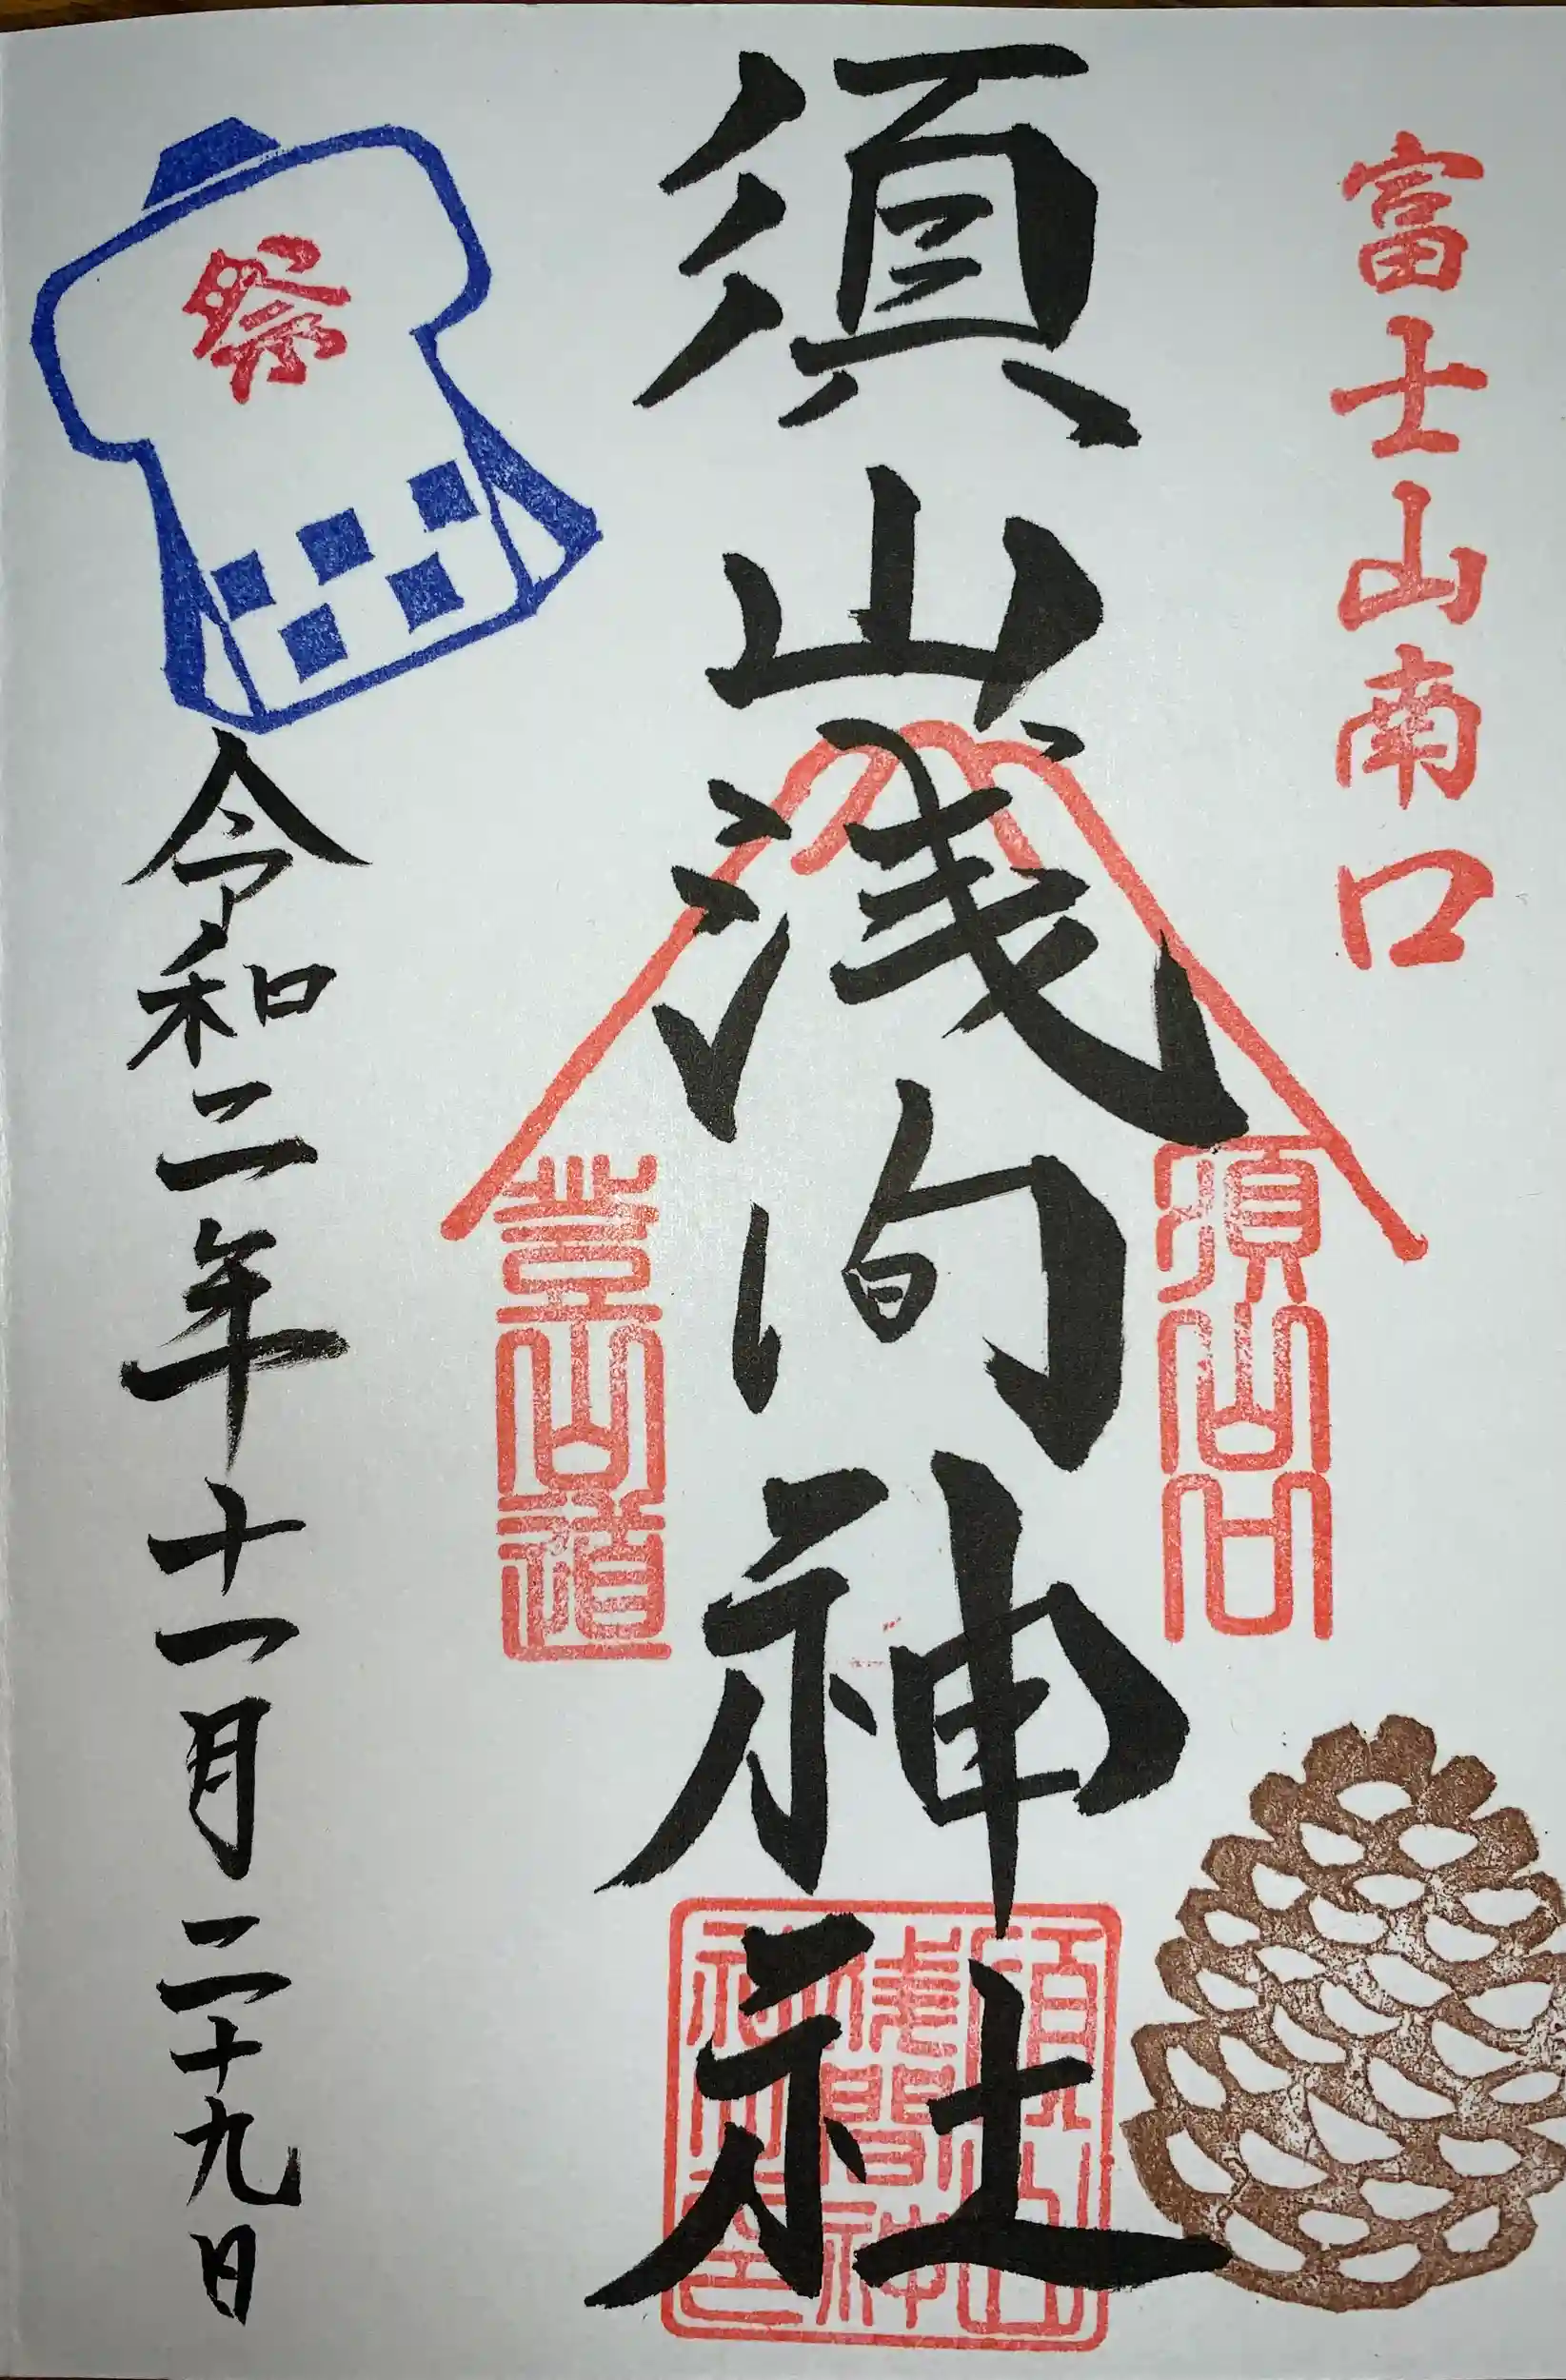 富士山南口
須山浅間神社
須山口
登山道
祭
令和二年十一月二十九日